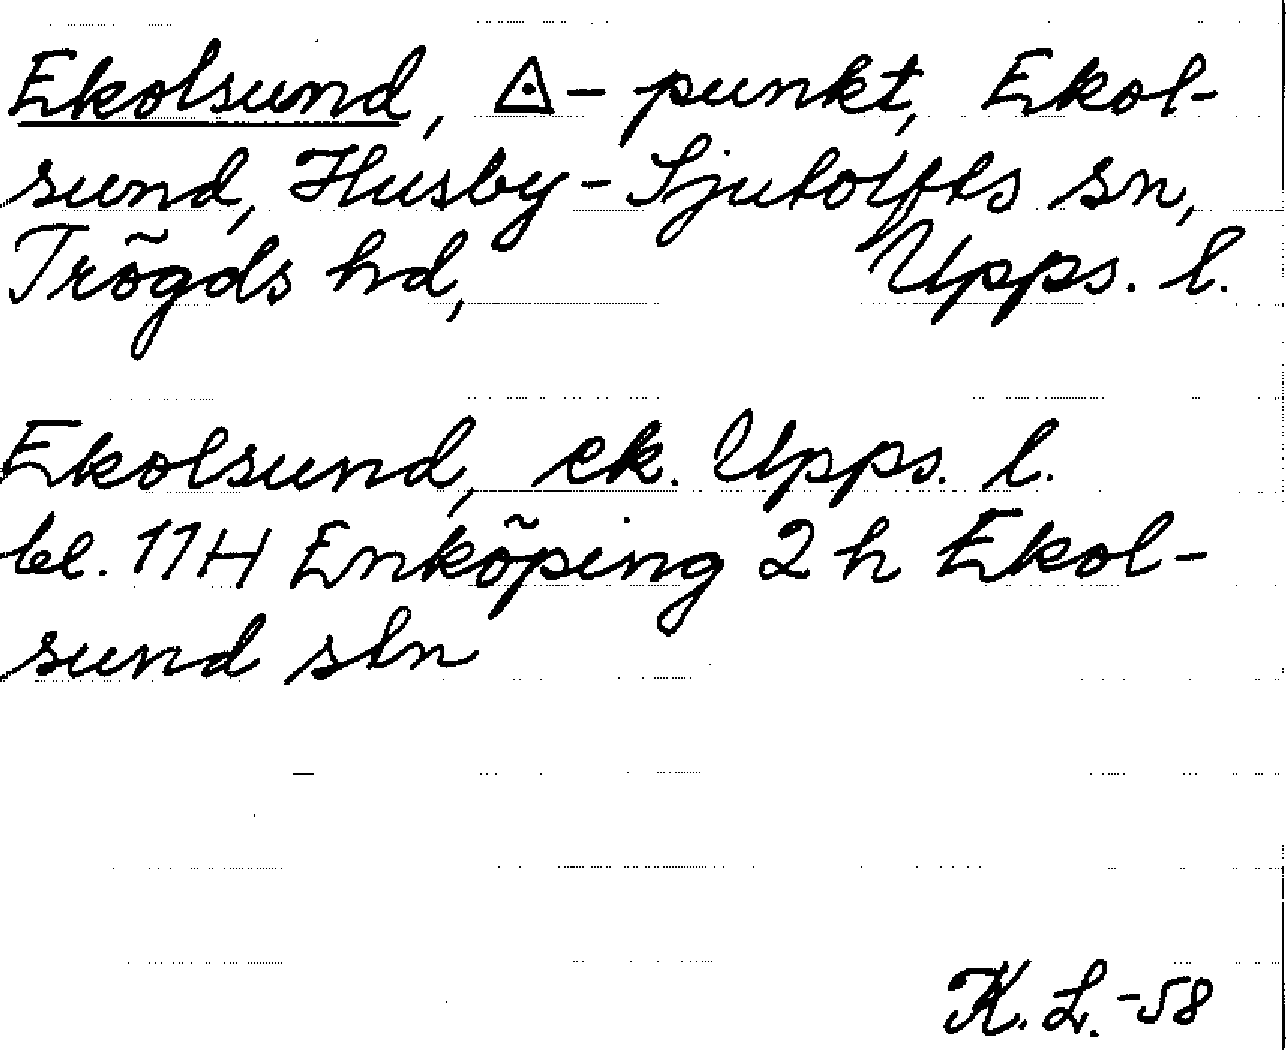 Ekolsund, ◬-punkt, Ekol-
sund, Husby-Sjutolfts sn,
Trögds hd, Upps. l.
Ekolsund, ek. Upps. l.
bl. 11H Enköping 2h Ekol-
sund stn
K. L. -58